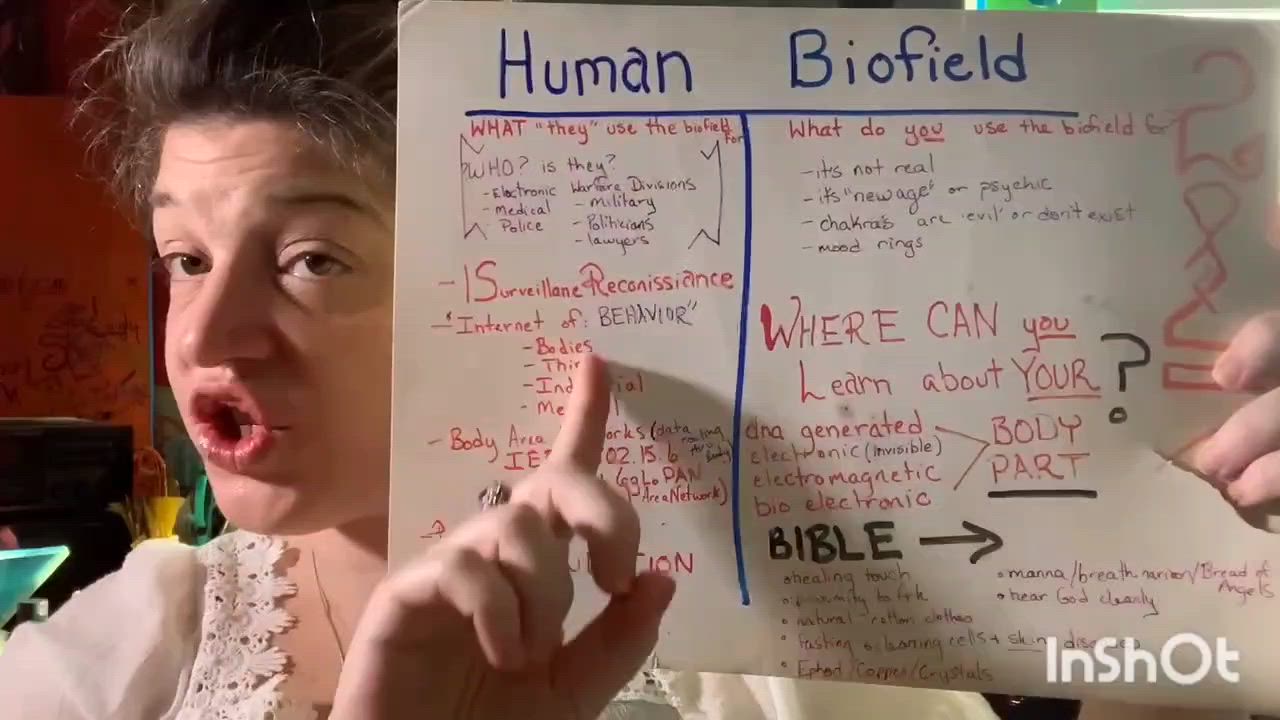 Human Biofield
WHAT "they" use the biofield for
WHO? is they?
- Electronic Warfare Divisions
- Medical - military
- Police - Politicians
- lawyers
- ISurveillane Reconissiance
- "Internet of: BEHAVIOR"
- Bodies
- Thin
- Ind ial
- Me l
- Body Area orks (data routing thru body)
IE 02.15.6
(6g LoPAN
Area Network)
TION
What do you use the biofield for
- its not real
- its "new age" or psychic
- chakras are 'evil' or don't exist
- mood rings
WHERE CAN you
Learn about YOUR ?
dna generated
electronic (invisible)
electromagnetic
bio electronic
BODY
PART
BIBLE →
• healing touch
• proximity to
• natural cotton clothes
• fasting cleaning cells + skin
• Ephod/Copper/Crystals
• manna/breath /Bread of Angels
• hear God clearly
InShOt